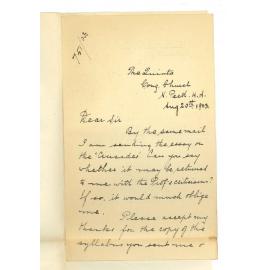 Cong. Church
N. Perth. W.A.
Aug 20th, 1903.
Dear Sir
By the same mail
I am sending the essay on
the "Crusades". Can you say
whether it may be returned
to me with the Prof's criticism?
If so, it would much oblige
me.
Please accept my
thanks for the copy of the
syllabus you sent me &